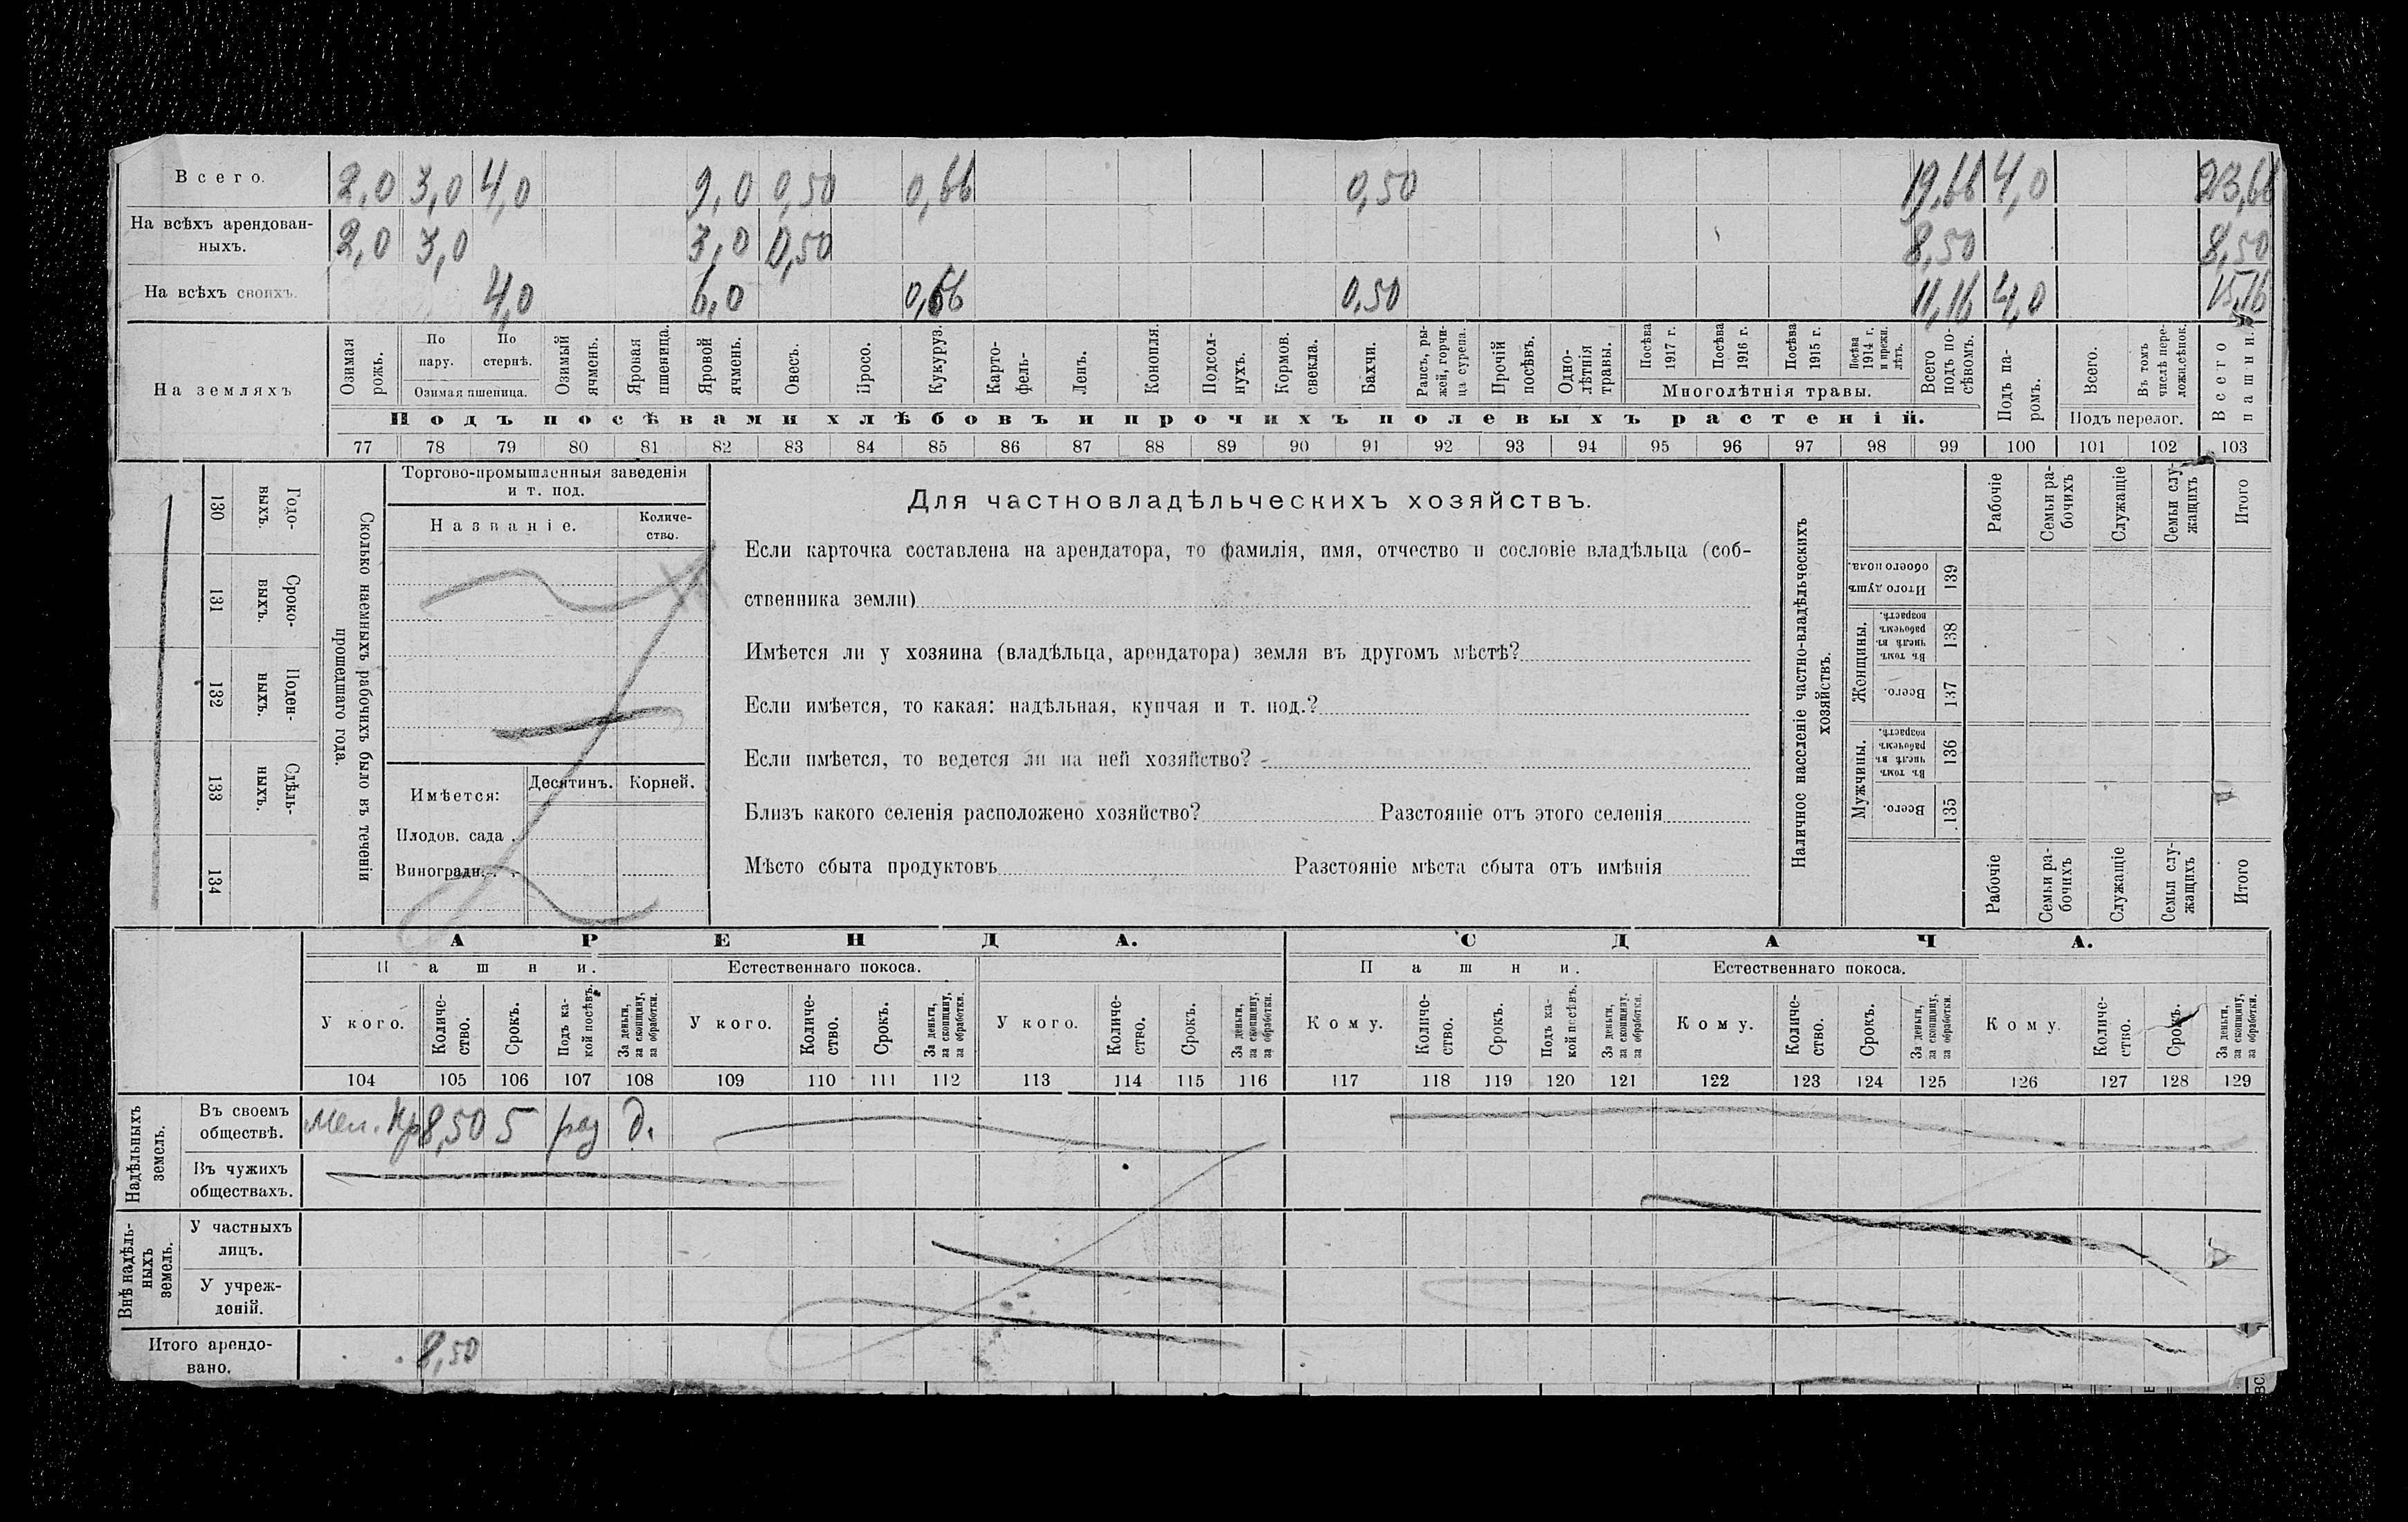 Всего. 2,0 3,0 4,0 9,0 0,50 0,66 0,50 19,66 4,0 23,66
На всѣхъ арендован-
ныхъ. 2,0 3,0 3,0 0,50 8,50 8,50
На всѣхъ своихъ. 4,0 6,0 0,66 0,50 11,16 4,0 15,16
На земляхъ
Озимая рожь.
По пару.
По стернѣ.
Озимая пшеница.
Озимый ячмень.
Яровая пшеница.
Яровой ячмень.
Овесъ.
Просо.
Кукуруз.
Карто-
фель.
Ленъ.
Конопля.
Подсол-
нухъ.
Кормов.
свекла.
Бахчи.
Рапсъ, ры-
жей, горчи-
ца сурепа.
Прочій
посѣвъ.
Одно-
лѣтнія
травы.
Посѣва
1917 г.
Посѣва
1916 г.
Посѣва
1915 г.
Посѣва
1914 г.
и прежн.
лѣтъ.
Многолѣтнія травы.
Всего
подъ по-
сѣвомъ.
Подъ па-
ромъ.
Всего.
Въ томъ
числѣ пере-
ложн.сѣнок.
Подъ перелог.
Всего
пашни.
Подъ посѣвами хлѣбовъ и прочихъ полевыхъ растеній.
77 78 79 80 81 82 83 84 85 86 87 88 89 90 91 92 93 94 95 96 97 98 99 100 101 102 103
130 Годо-
выхъ.
131 Сроко-
выхъ.
132 Поден-
ныхъ.
133 Сдѣль-
ныхъ.
134
Сколько наемныхъ рабочихъ было въ теченіи
прошедшаго года.
Торгово-промышленныя заведенія
и т. под.
Названіе.
Количе-
ство.
Имѣется:
Десятинъ. Корней.
Плодов. сада .
Виноградн. . .
Для частновладѣльческихъ хозяйствъ.
Если карточка составлена на арендатора, то фамилія, имя, отчество и сословіе владѣльца (соб-
ственника земли)
Имѣется ли у хозяина (владѣльца, арендатора) земля въ другомъ мѣстѣ?
Если имѣется, то какая: надѣльная, купчая и т. под.?
Если имѣется, то ведется ли на ней хозяйство?
Близъ какого селенія расположено хозяйство? Разстояніе отъ этого селенія
Мѣсто сбыта продуктовъ Разстояніе мѣста сбыта отъ имѣнія
Наличное населеніе частно-владѣльческихъ
хозяйствъ.
Рабочіе
Семьи ра-
бочихъ
Служащіе
Семьи слу-
жащихъ
Итого
Итого душъ
обоего пола.
139
Женщины.
Въ томъ
числѣ въ
рабочемъ
возрастѣ.
138
Всего.
137
Мужчины.
Въ томъ
числѣ въ
рабочемъ
возрастѣ.
136
Всего.
135
Рабочіе
Семьи ра-
бочихъ
Служащіе
Семьи слу-
жащихъ
Итого
АРЕНДА. СДАЧА.
Пашни. Естественнаго покоса. Пашни. Естественнаго покоса.
У кого.
Количе-
ство.
Срокъ.
Подъ ка-
кой посѣвъ.
За деньги,
за скопщину,
за обработки.
У кого.
Количе-
ство.
Срокъ.
За деньги,
за скопщину,
за обработки.
У кого.
Количе-
ство.
Срокъ.
За деньги,
за скопщину,
за обработки.
Кому.
Количе-
ство.
Срокъ.
Подъ ка-
кой посѣвъ.
За деньги,
за скопщину,
за обработки.
Кому.
Количе-
ство.
Срокъ.
За деньги,
за скопщину,
за обработки.
Кому.
Количе-
ство.
Срокъ.
За деньги,
за скопщину,
за обработки.
104 105 106 107 108 109 110 111 112 113 114 115 116 117 118 119 120 121 122 123 124 125 126 127 128 129
Надѣльныхъ
земель.
Въ своемъ
обществѣ. 8,50 5 раз д.
Въ чужихъ
обществахъ.
Внѣ надѣль-
ныхъ
земель.
У частныхъ
лицъ.
У учреж-
деній.
Итого арендо-
вано. 8,50